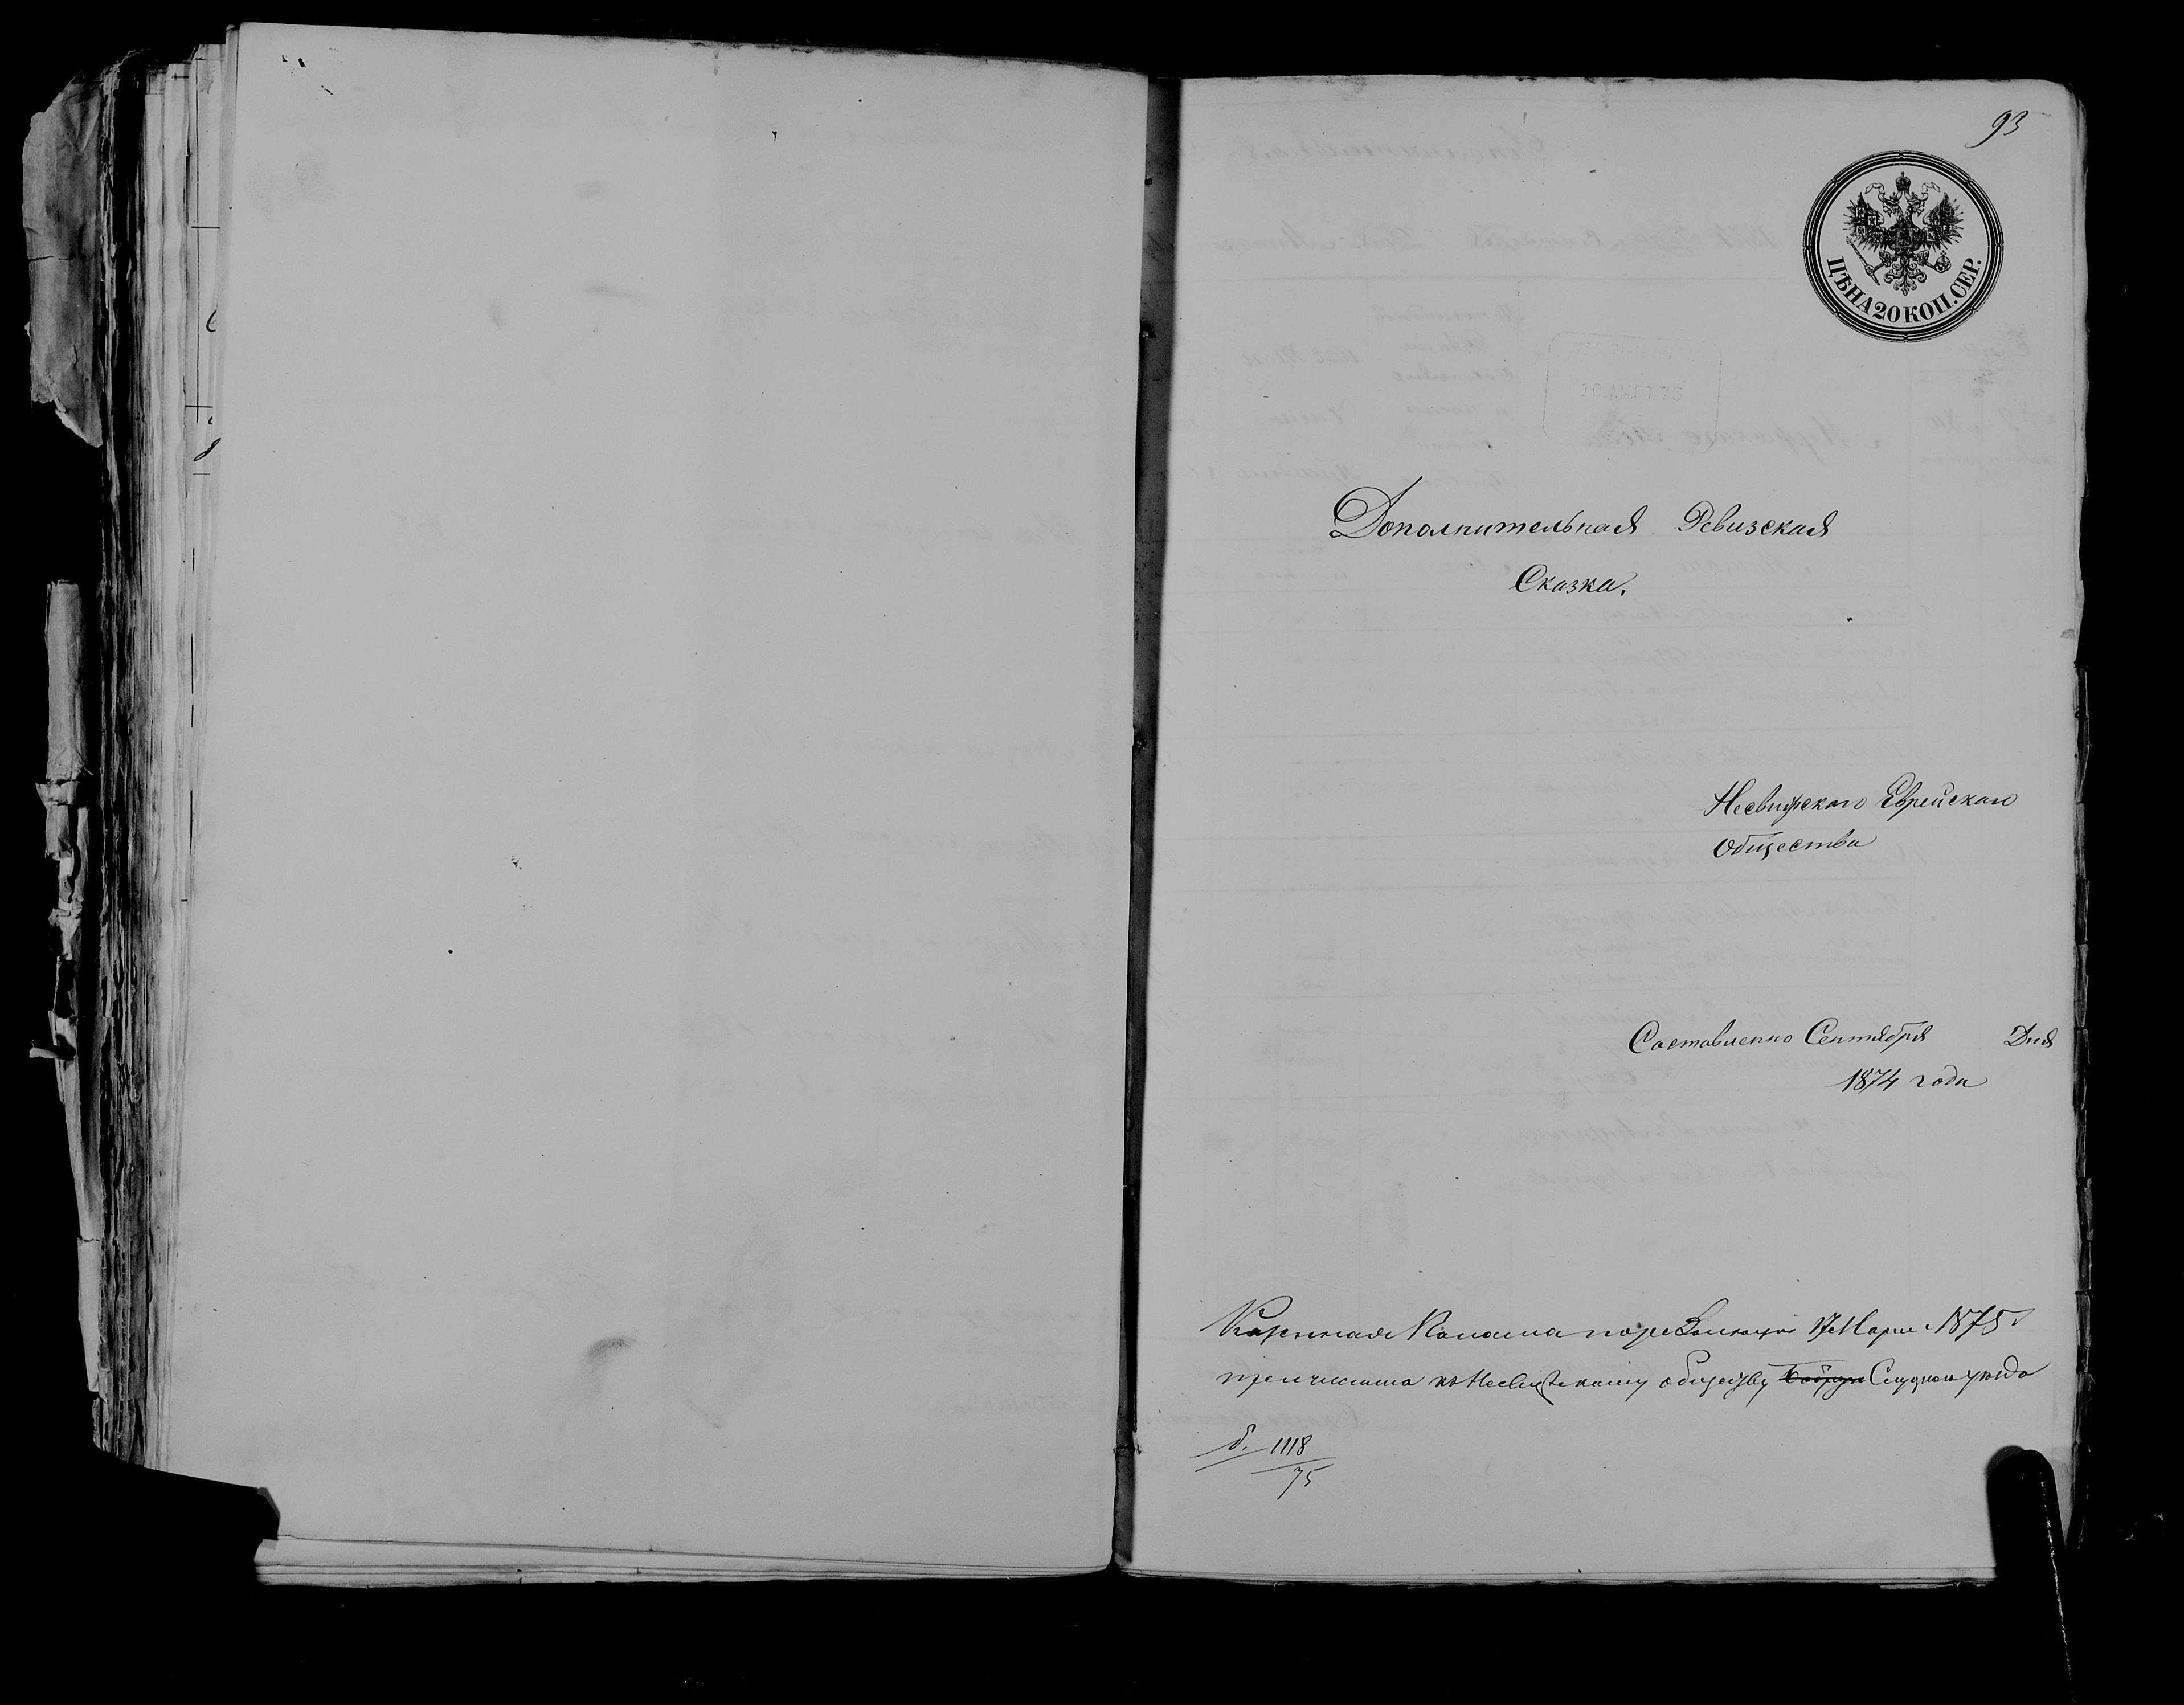 93
ЦѢНА 20 КОП. СЕР.
Дополнительная Ревизская
Сказка.
Несвижскаго Еврейскаго
Общества
Составлена Сентября Дня
1874 года
Казенная Палата по резолюции 17 Марта 1875
причислила къ Несвижскому обществу Слуцкаго уѣзда
1118
75